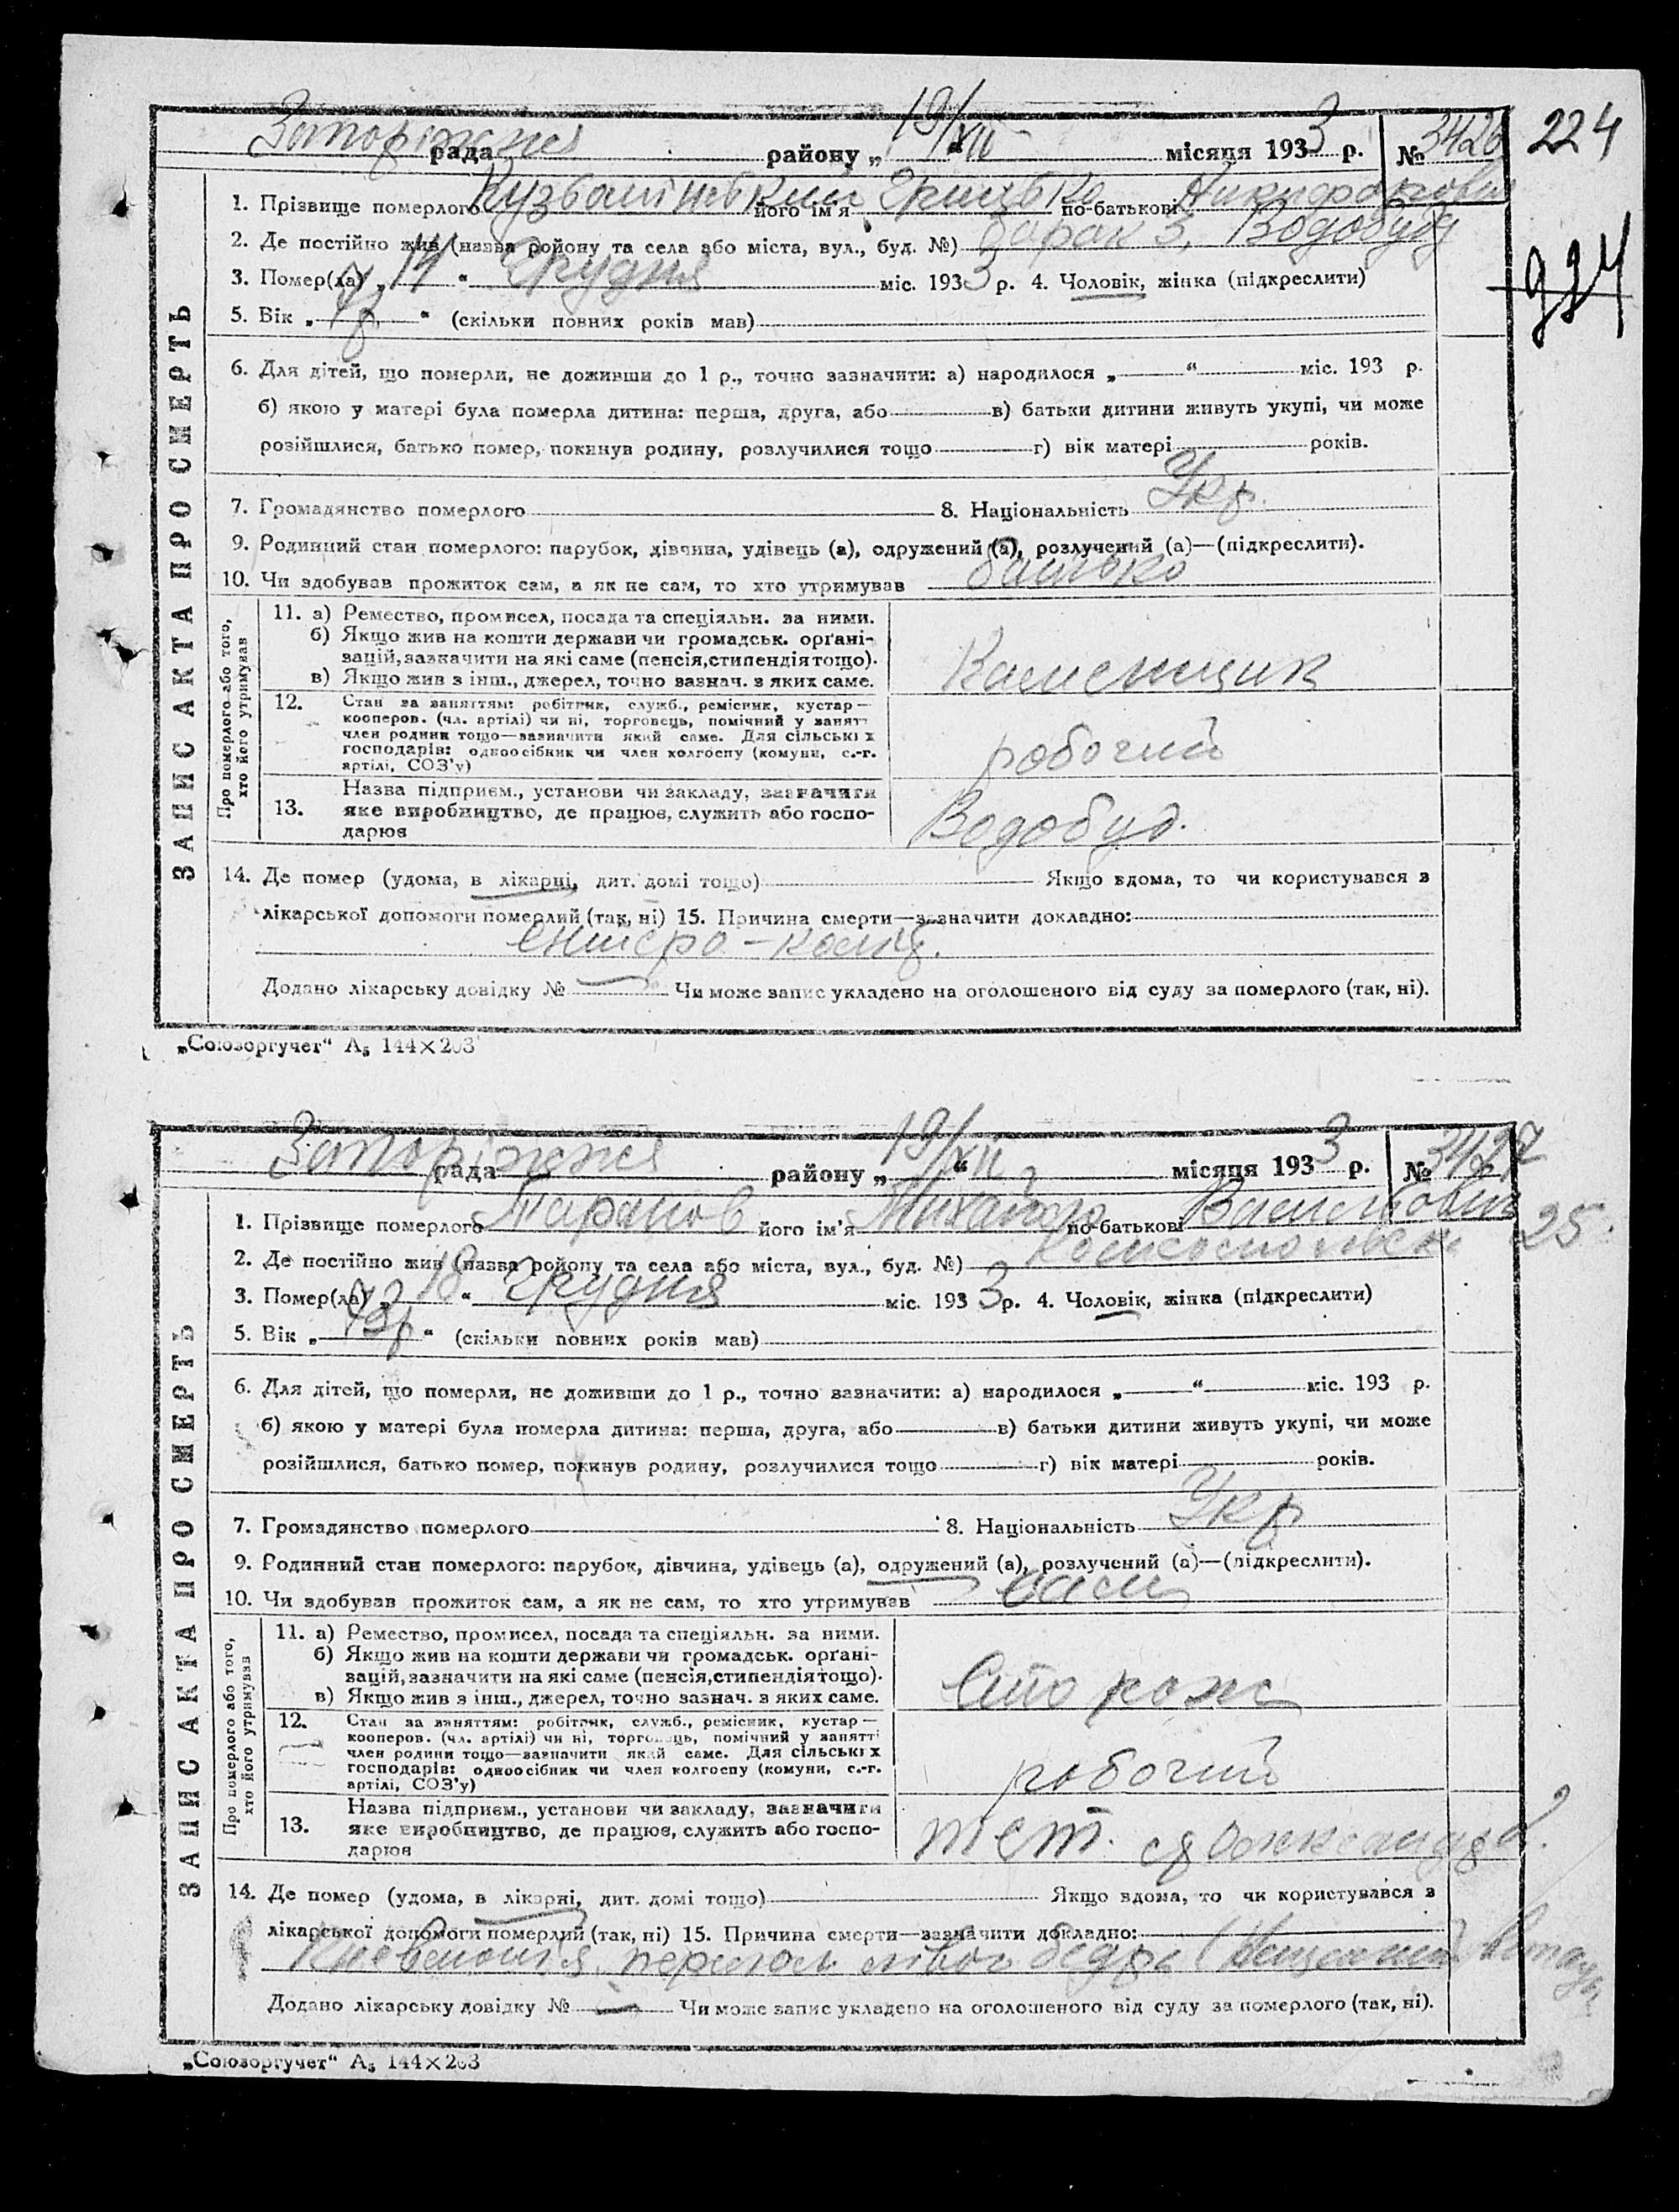 224
Запоріжжя рада району „ 19/XII “ місяця 1933 р. № 3426
1. Прізвище померлого його ім'я Грицько по-батькові Никифорович
2. Де постійно жив (назва ройону та села або міста, вул., буд. №) барак 3, Водобуд
924
3. Помер(ла) „ 14 “ Грудня міс. 1933 р. 4. Чоловік, жінка (підкреслити)
5. Вік „ “ (скільки повних років мав)
6. Для дітей, що померли, не доживши до 1 р., точно зазначити: а) народилося „ “ міс. 193 р.
б) якою у матері була померла дитина: перша, друга, або в) батьки дитини живуть укупі, чи може
розійшлися, батько помер, покинув родину, розлучилися тощо г) вік матері років.
7. Громадянство померлого 8. Національність Укр.
9. Родинний стан померлого: парубок, дівчина, удівець (а), одружений (а), розлучений (а)—(підкреслити).
10. Чи здобував прожиток сам, а як не сам, то хто утримував батько
ЗАПИС АКТА ПРО СМЕРТЬ
Про померлого або того,
хто його утримував
11. а) Ремество, промисел, посада та спеціяльн. за ними.
б) Якщо жив на кошти держави чи громадськ. орґані-
зацій, зазначити на які саме (пенсія, стипендія тощо).
в) Якщо жив з інш., джерел, точно зазнач. з яких саме.
Каменщик
12. Стан за заняттям: робітник, служб., ремісник, кустар—
кооперов. (чл. артілі) чи ні, торговець, помічний у занятт
член родини тощо—зазначити який саме. Для сільських
господарів: одноосібник чи член колгоспу (комуни, с.-г.
артілі, СОЗ'у)
робочий
13. Назва підприєм., установи чи закладу, зазначити
яке виробництво, де працює, служить або госпо-
дарює
Водобуд.
14. Де помер (удома, в лікарні, дит. домі тощо) Якщо вдома, то чи користувався з
лікарської допомоги померлий (так, ні) 15. Причина смерти—зазначити докладно:
ентеро-коліт.
Додано лікарську довідку № Чи може запис укладено на оголошеного від суду за померлого (так, ні).
„Союзоргучет“ А₅ 144×203
Запоріжжя рада району „ 19/XII “ місяця 1933 р. № 3427
1. Прізвище померлого Таранов його ім'я Михайло по-батькові Васильович
25
2. Де постійно жив (назва ройону та села або міста, вул., буд. №) Комсомольськ
3. Помер(ла) „ 18 “ Грудня міс. 1933 р. 4. Чоловік, жінка (підкреслити)
5. Вік „ “ (скільки повних років мав)
6. Для дітей, що померли, не доживши до 1 р., точно зазначити: а) народилося „ “ міс. 193 р.
б) якою у матері була померла дитина: перша, друга, або в) батьки дитини живуть укупі, чи може
розійшлися, батько помер, покинув родину, розлучилися тощо г) вік матері років.
7. Громадянство померлого 8. Національність Укр
9. Родинний стан померлого: парубок, дівчина, удівець (а), одружений (а), розлучений (а)—(підкреслити).
10. Чи здобував прожиток сам, а як не сам, то хто утримував сам
ЗАПИС АКТА ПРО СМЕРТЬ
Про померлого або того,
хто його утримував
11. а) Ремество, промисел, посада та спеціяльн. за ними.
б) Якщо жив на кошти держави чи громадськ. орґані-
зацій, зазначити на які саме (пенсія, стипендія тощо).
в) Якщо жив з інш., джерел, точно зазнач. з яких саме.
Сторож
12. Стан за заняттям: робітник, служб., ремісник, кустар—
кооперов. (чл. артілі) чи ні, торговець, помічний у занятті
член родини тощо—зазначити який саме. Для сільських
господарів: одноосібник чи член колгоспу (комуни, с.-г.
артілі, СОЗ'у)
робочий
13. Назва підприєм., установи чи закладу, зазначити
яке виробництво, де працює, служить або госпо-
дарює
14. Де помер (удома, в лікарні, дит. домі тощо) Якщо вдома, то чи користувався з
лікарської допомоги померлий (так, ні) 15. Причина смерти—зазначити докладно:
Пневмонія, перелом лівої бедра
Додано лікарську довідку № Чи може запис укладено на оголошеного від суду за померлого (так, ні).
„Союзоргучет“ А₅ 144×203